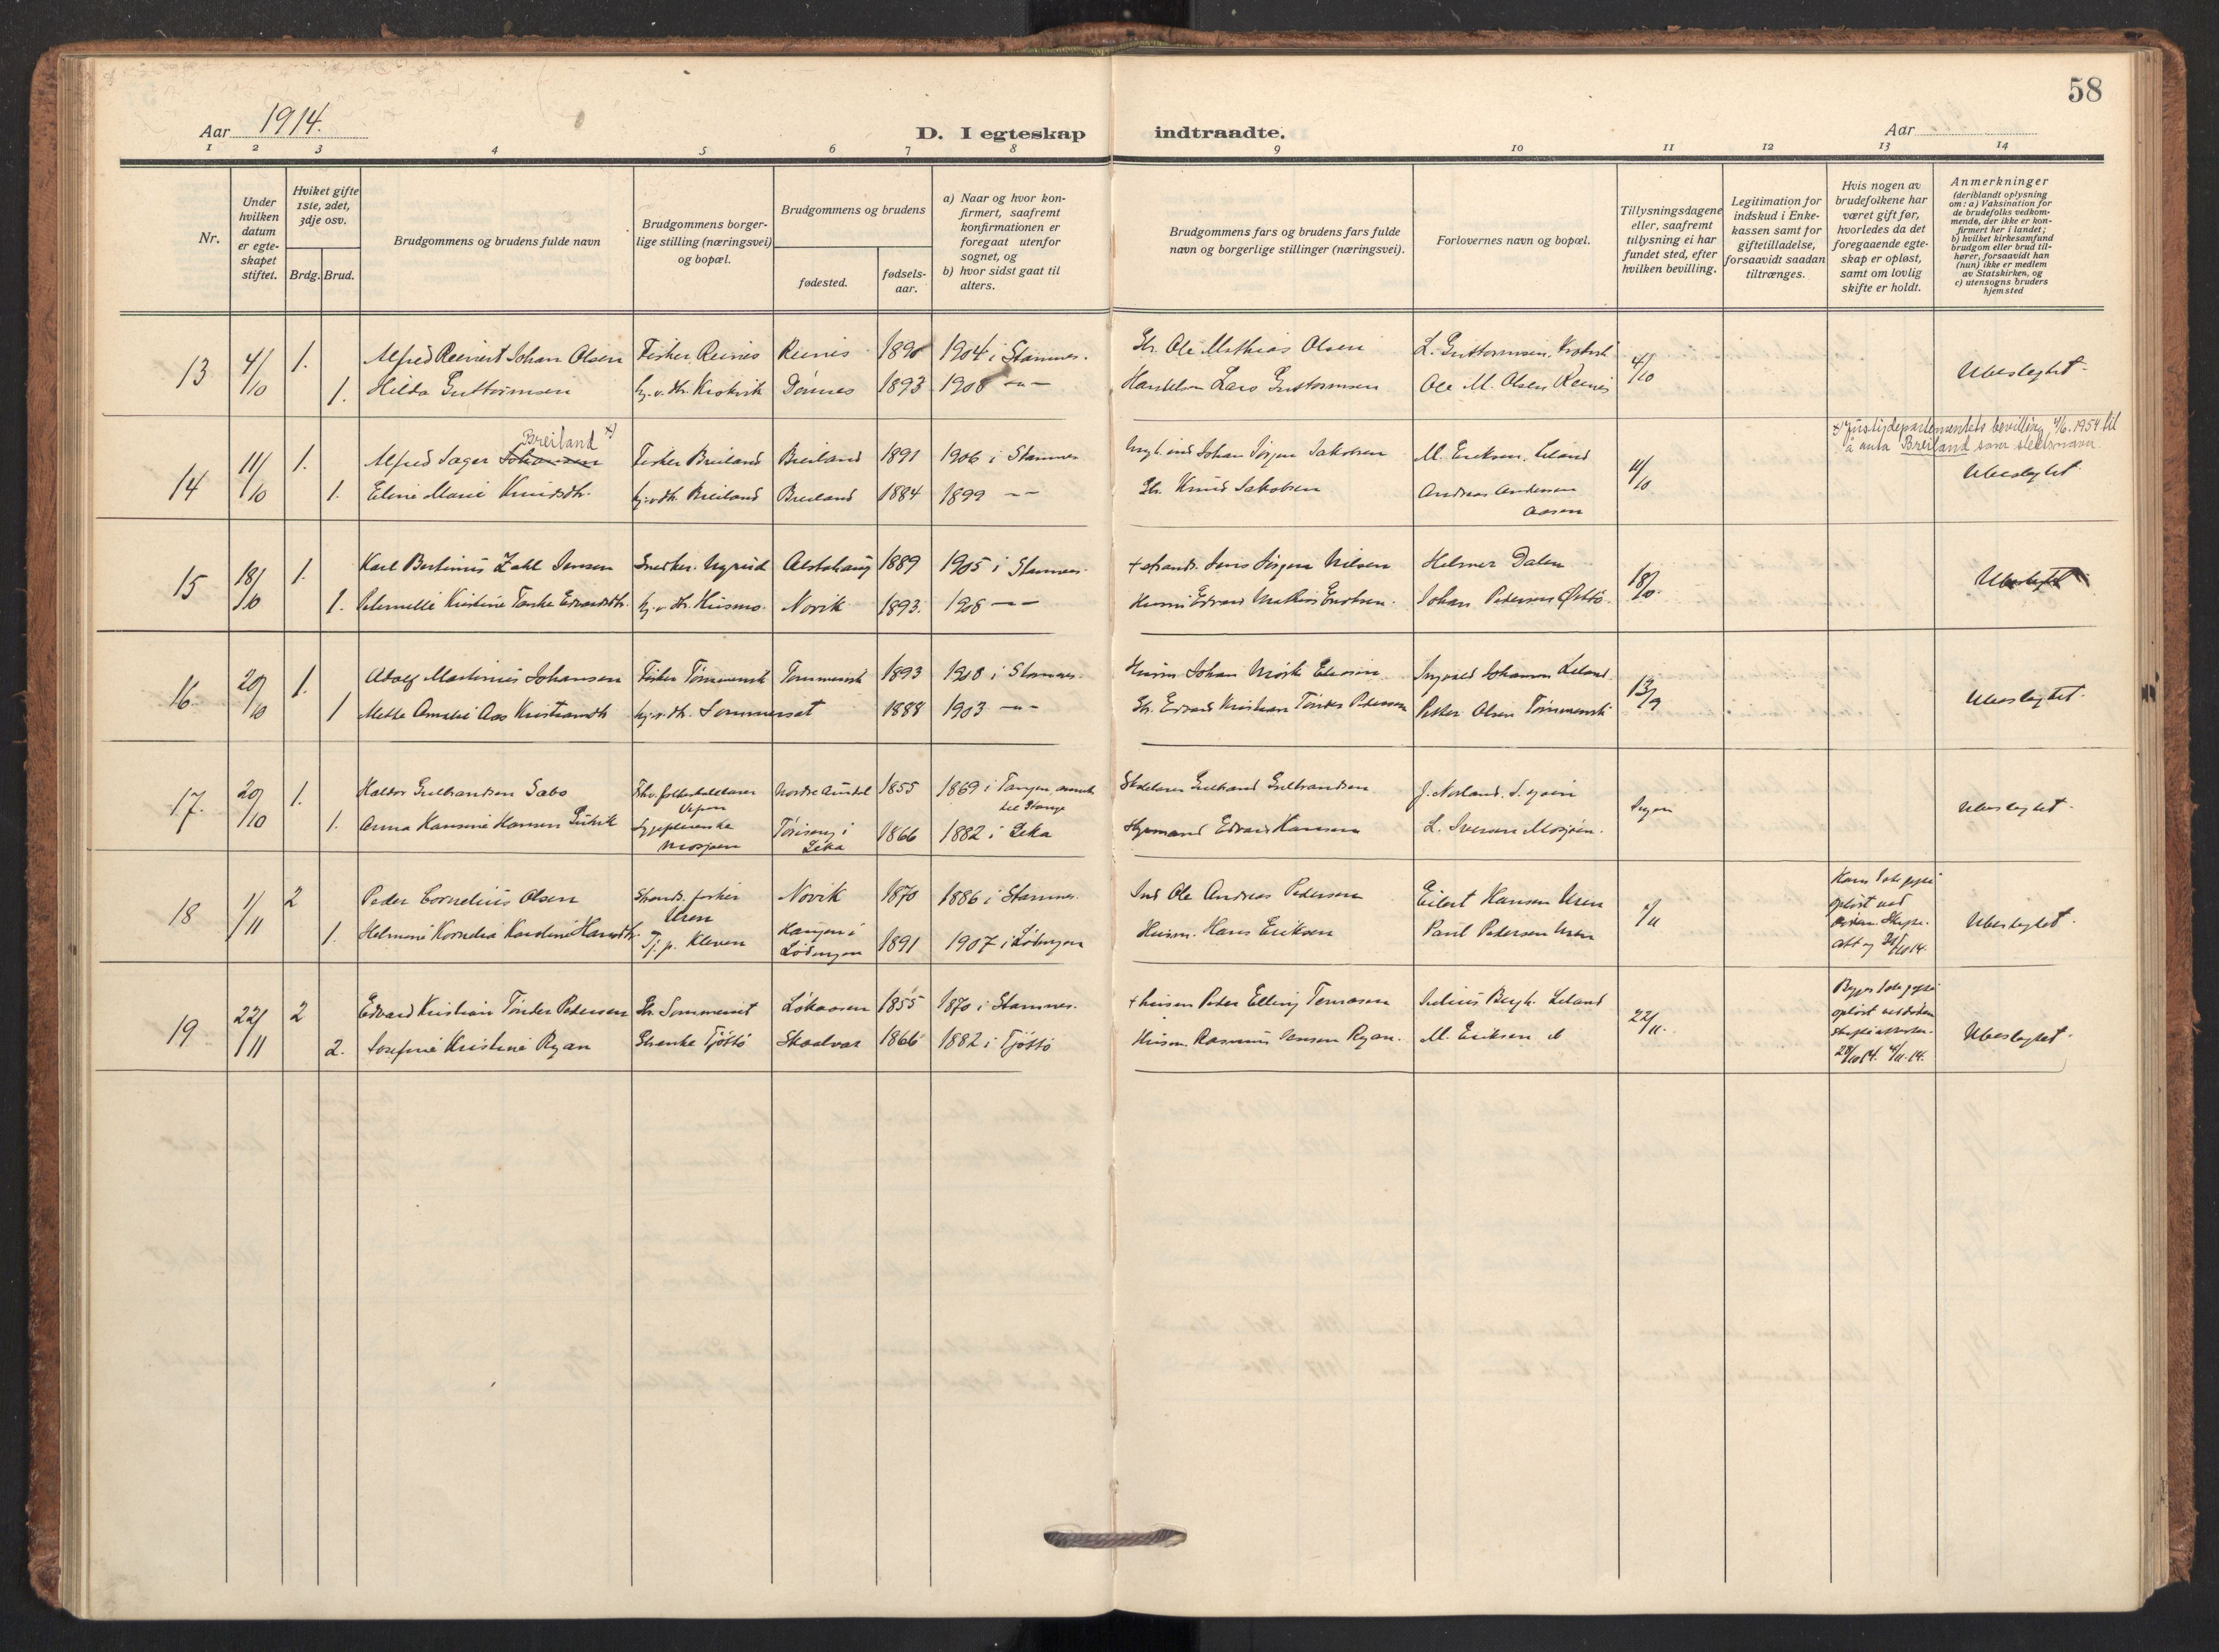 58
Aar 1914. D. I egteskap indtraadte. Aar
1 2 3 4 5 6 7 8 9 10 11 12 13 14
Nr.
Under hvilken datum er egte-skapet stiftet.
Hviket gifte 1ste, 2det, 3dje osv.
Brdg. Brud.
Brudgommens og brudens fulde navn
Brudgommens borger-lige stilling (næringsvei) og bopæl.
Brudgommens og brudens
fødested.
fødsels-aar.
a) Naar og hvor kon-firmert, saafremt konfirmationen er foregaat utenfor sognet, og
b) hvor sidst gaat til alters.
Brudgommens fars og brudens fars fulde navn og borgerlige stillinger (næringsvei).
Forlovernes navn og bopæl.
Tillysningsdagene eller, saafremt tillysning ei har fundet sted, efter hvilken bevilling.
Legitimation for indskud i Enke-kassen samt for giftetilladelse, forsaavidt saadan tiltrænges.
Hvis nogen av brudefolkene har været gift før, hvorledes da det foregaaende egte-skap er opløst, samt om lovlig skifte er holdt.
Anmerkninger (deriblandt oplysning om: a) Vaksination for de brudefolks vedkom-mende, der ikke er kon-firmert her i landet; b) hvilket kirkesamfund brudgom eller brud til-hører, forsaavidt han (hun) ikke er medlem av Statskirken, og c) utensogns bruders hjemsted
13 4/10 1. Alfred Reinert Johan Olsen Fisker Reines Reines 1890 1904 i Stamnes. Str. Ole Mathias Olsen L. Guttormsen, Krokvik 4/10 Ubeslegtet.
1. Hilda Guttormsen hj. v. str. Krokvik Dönnes 1893 1908 -"- Handelsm Lars Guttormsen Ole M. Olsen Reines
Breiland x)
x) Justisdepartementets bevilling 4/6.1954 til
å anta Breiland som slektsnavn.
14 11/10 1. Alfred Jager Johansen Fisker Breiland Breiland 1891 1906 i Stamnes Johan Jörgen Jakobsen M. Eriksen, Leland 11/10 Ubeslegtet
1. Eline Marie Knudsdtr. Breiland Breiland 1884 1899 -"- Str. Knud Jakobsen Andreas Andersen
Aasen
15 18/10 1. Karl Bertinus Zahl Jensen Snedker. Nyrud Alstahaug 1889 1905 i Stamnes. + Strands. Jens Jörgen Nilsen Helmer Dalen 18/10 Ubeslegtet
1. Peternelle Kristine Edvardsdtr. Husmo. Novik 1893. 1908 -"- Husm Edvard Mathias Eriksen. Johan Pedersen
16. 20/10 1. Adolf Martinius Johansen Fisker 1893 1908 i Stamnes. Husm Johan Ingvald Johansen Leland. 13/9 Ubeslegtet.
1 Mette Amalie Aas Kristiansdtr Sommerset 1888 1903 -"- Str. Edvard Kristian Tönder Pedersen Petter Olsen
17. 20/10 1. Haldor Gulbrandsen Sæbo Nordre Aurdal 1855 1869 i Tangen, anneks
til Stange Gulbrand Gulbrandsen J. Norland, Ubeslegtet.
1. Anna Hansine Hansen Sykepleierske
Mosjøen i
Leka 1866 1882 i Leka Styrmand Edvard Hansen L. Iversen Mosjøen.
18 1/11 2 Peder Cornelius Olsen Strands. fisker
Uren Novik 1870 1886 i Stamnes. Ind. Ole Andreas Pedersen Eilert Hansen Uren 1/11 Hans 1ste
opløst ved
døden. Skifte-
att. 14. Ubeslegtet.
1. Helmine Kornelia Karoline Hansdtr. Tj. p. Kleven i
Lödingen 1891 1907 i Lödingen Husm. Hans Eriksen Paul Pedersen Uren
19 22/11 2 Edvard Kristian Tönder Pedersen Str. Sommerset Lökaasen 1855 1870 i Stamnes. + husm Peder Elling Tomasen Julius Bergh. Leland 22/11. Begges 1ste
opløst ved døden
skifteattester.
28/10 14. 4/11. 14. Ubeslegtet.
2. Josefine Kristine Ryan Tjöttö Skaalvær 1866 1882 i Tjöttö Husm. Rasmus Jensen Ryan. M. Eriksen